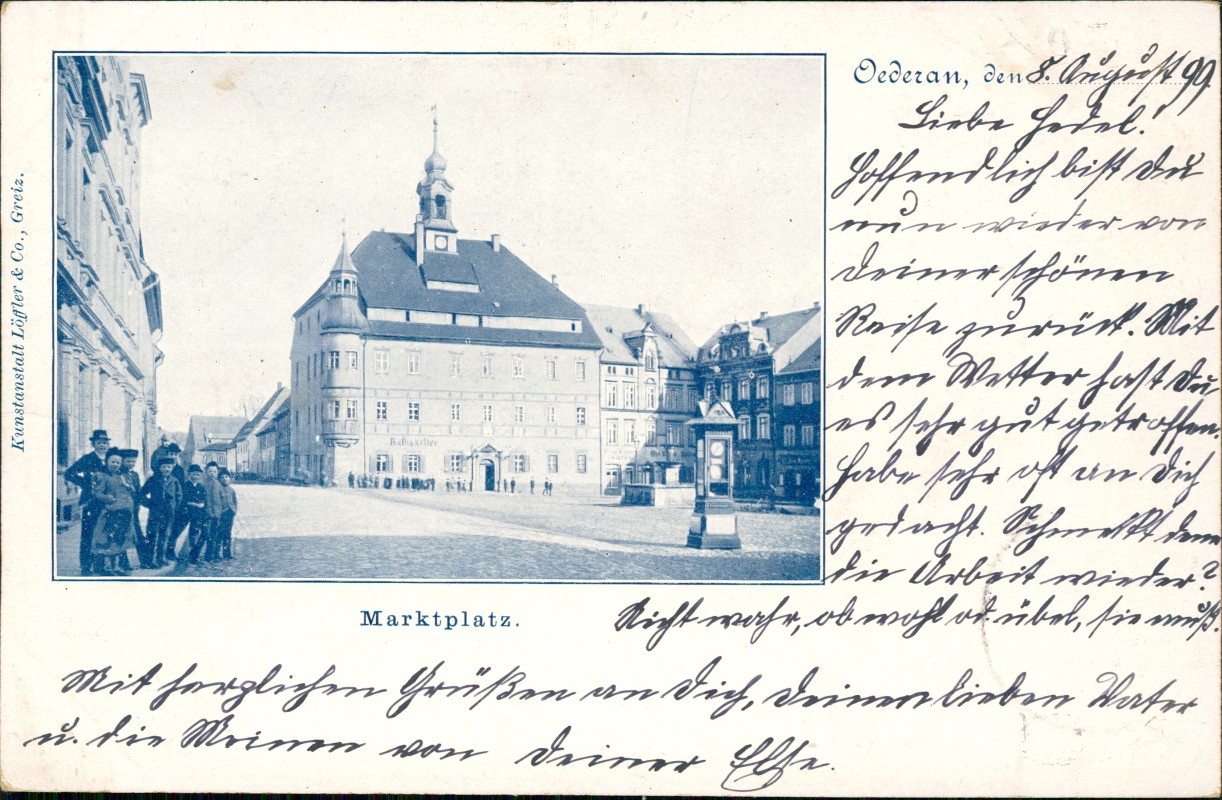 Oederan, den 8. August 99.
Liebe Hedel!
Hoffendlich bist Du
nun wieder von
Deiner schönen
Reise zurück. Mit
dem Wetter hast Du
es sehr gut getroffen.
Habe sehr oft an Dich
gedacht. Schmeckt denn
die Arbeit wieder?
Nicht wahr, ob wohl od. übel, sie muß.
Mit herzlichen Grüßen an Dich, Deinen lieben Vater
u. die Meinen von Deiner Else.
Marktplatz.
Kunstanstalt Löffler & Co., Greiz.
Rathskeller